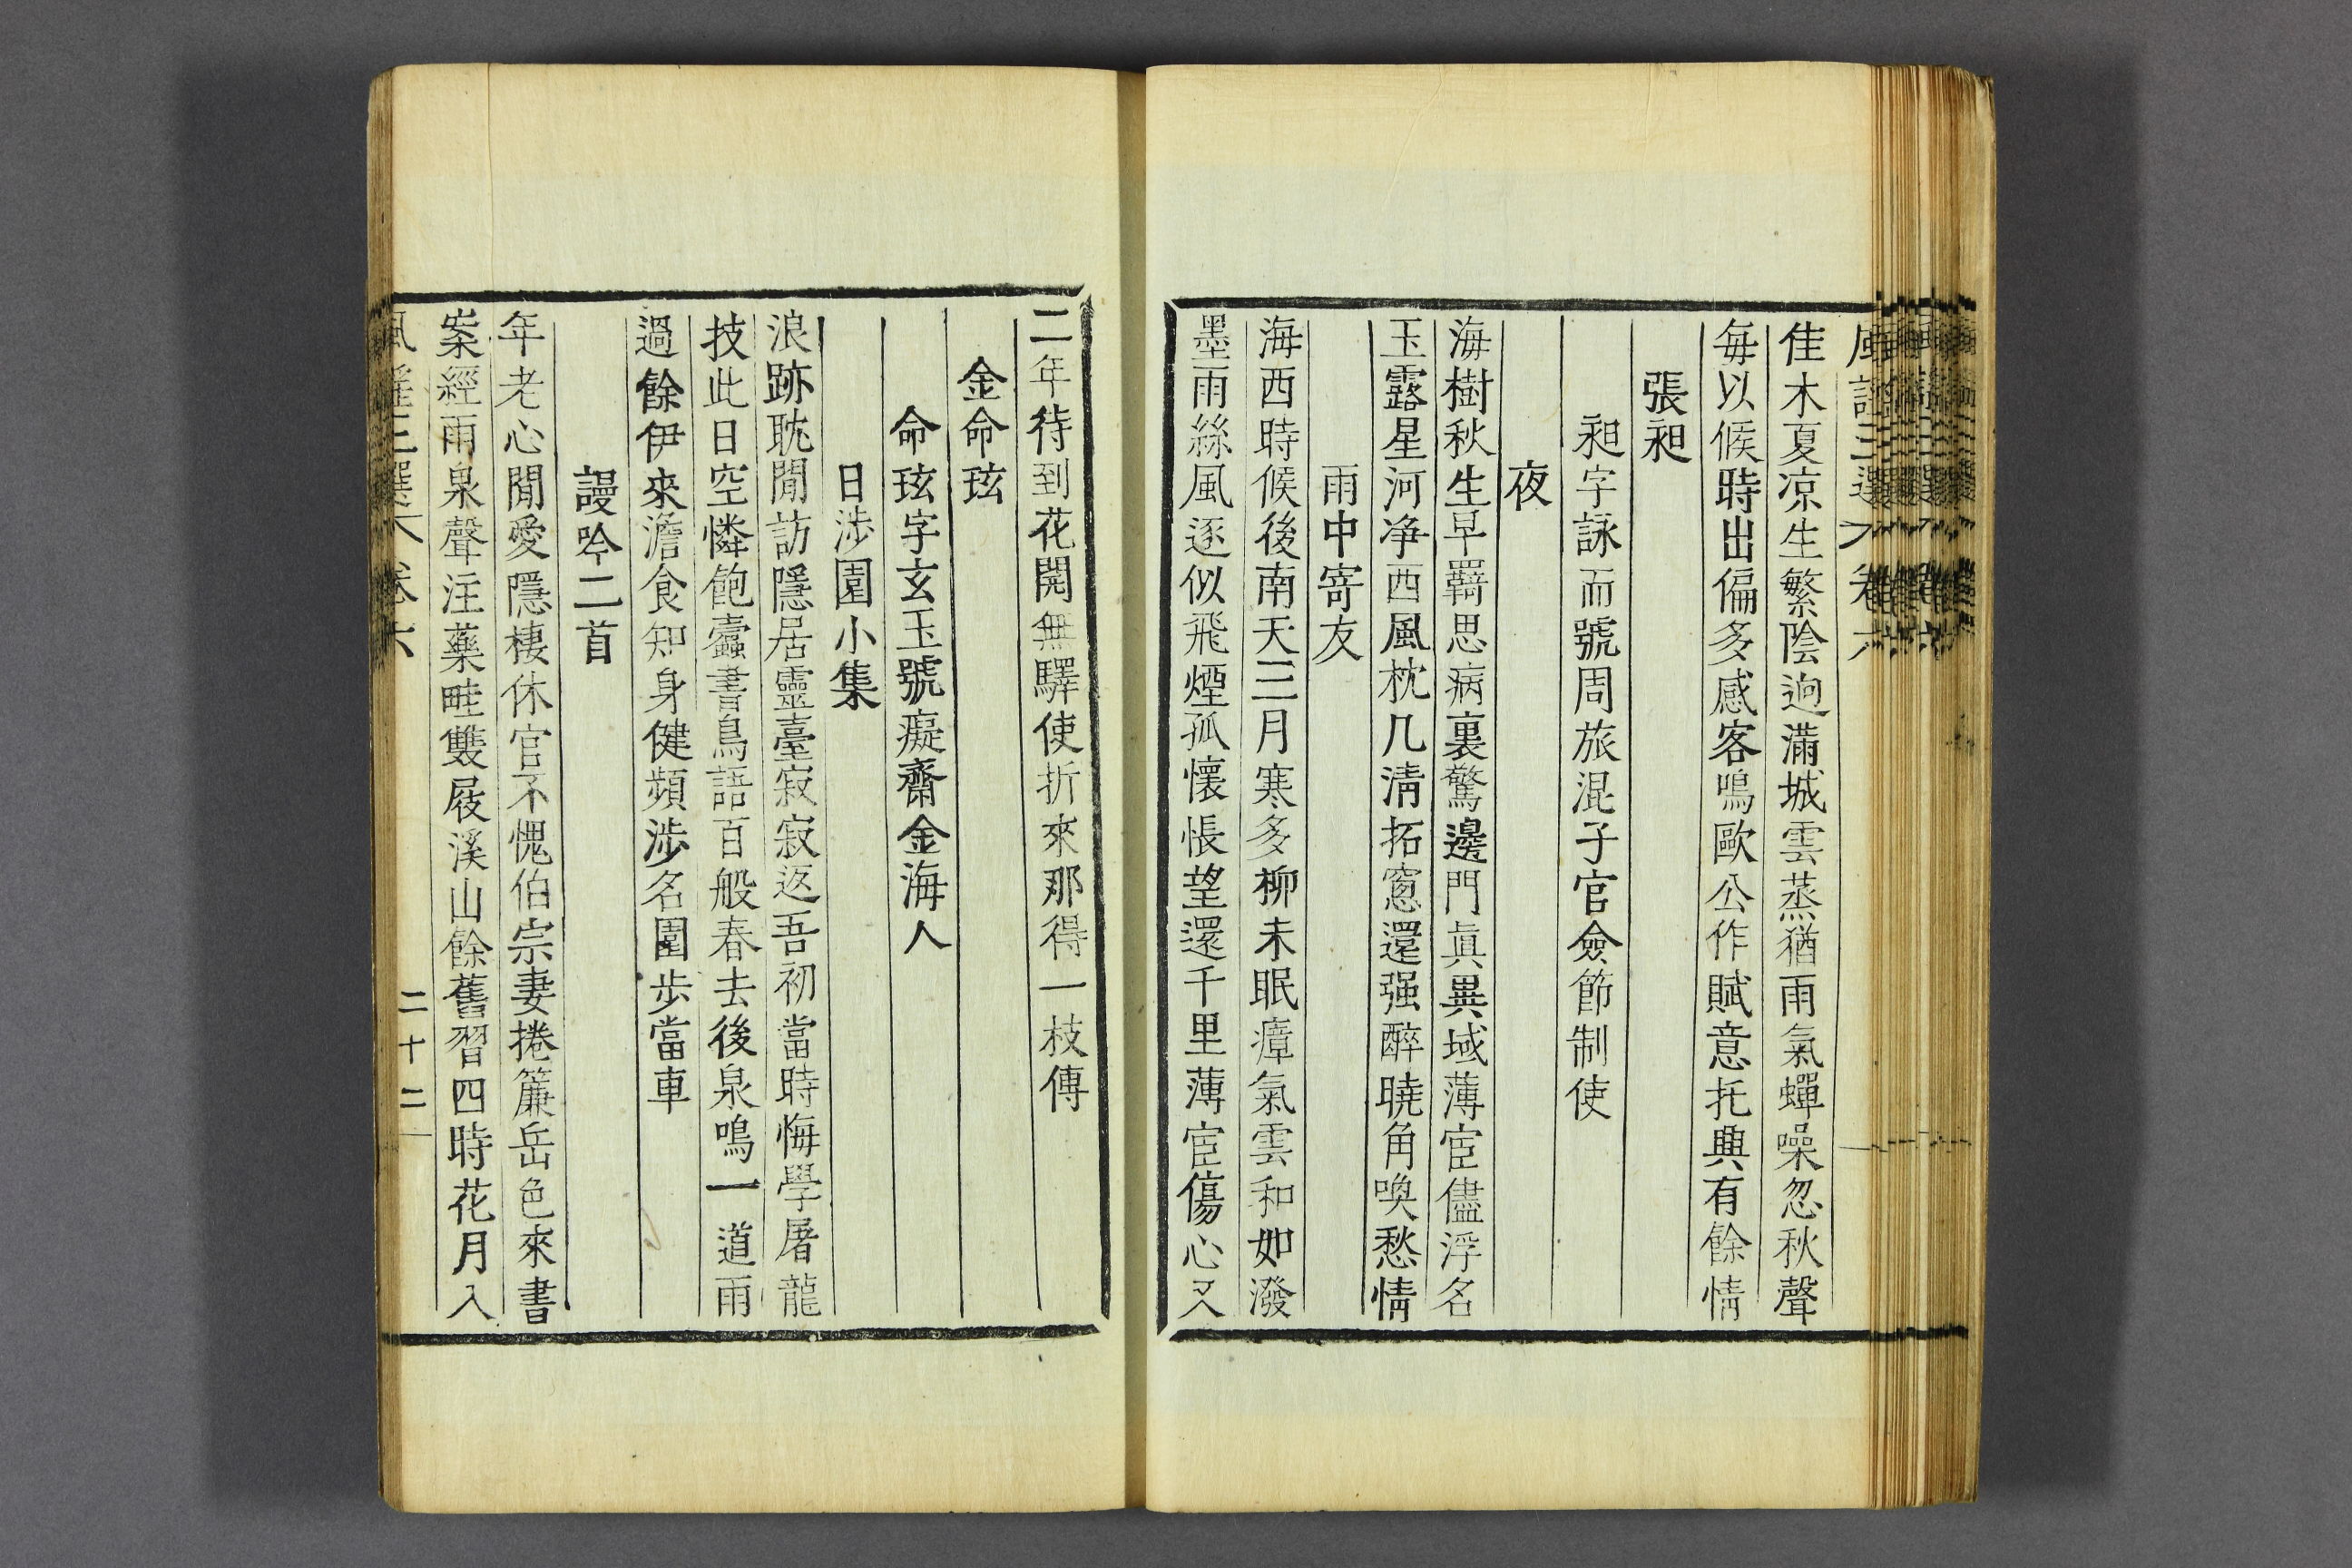 風謠三選 卷六
佳木夏凉生繁陰逈滿城雲蒸猶雨氣蟬噪忽秋聲
每以候時出偏多感客鳴歐公作賦意托興有餘情
張昶
昶字詠而號周旅混子官僉節制使
夜
海樹秋生早羇思病裏驚邊門眞異域薄宦儘浮名
玉露星河净西風枕几淸拓窓還强醉曉角喚愁情
雨中寄友
海西時候後南天三月寒多柳未眠瘴氣雲和如潑
墨雨絲風逐似飛煙孤懷悵望還千里薄宦傷心又
二年待到花開無驛使折來那得一枝傳
金命玹
命玹字玄玉號癡齋金海人
日涉園小集
浪跡耽閒訪隱居靈臺寂寂返吾初當時悔學屠龍
技此日空憐飽蠹書鳥語百般春去後泉鳴一道雨
過餘伊來澹食知身健頻涉名園步當車
謾吟二首
年老心閒愛隱棲休官不愧伯宗妻捲簾岳色來書
案經雨泉聲注藥畦雙屐溪山餘舊習四時花月入
風謠三選 卷六 二十二